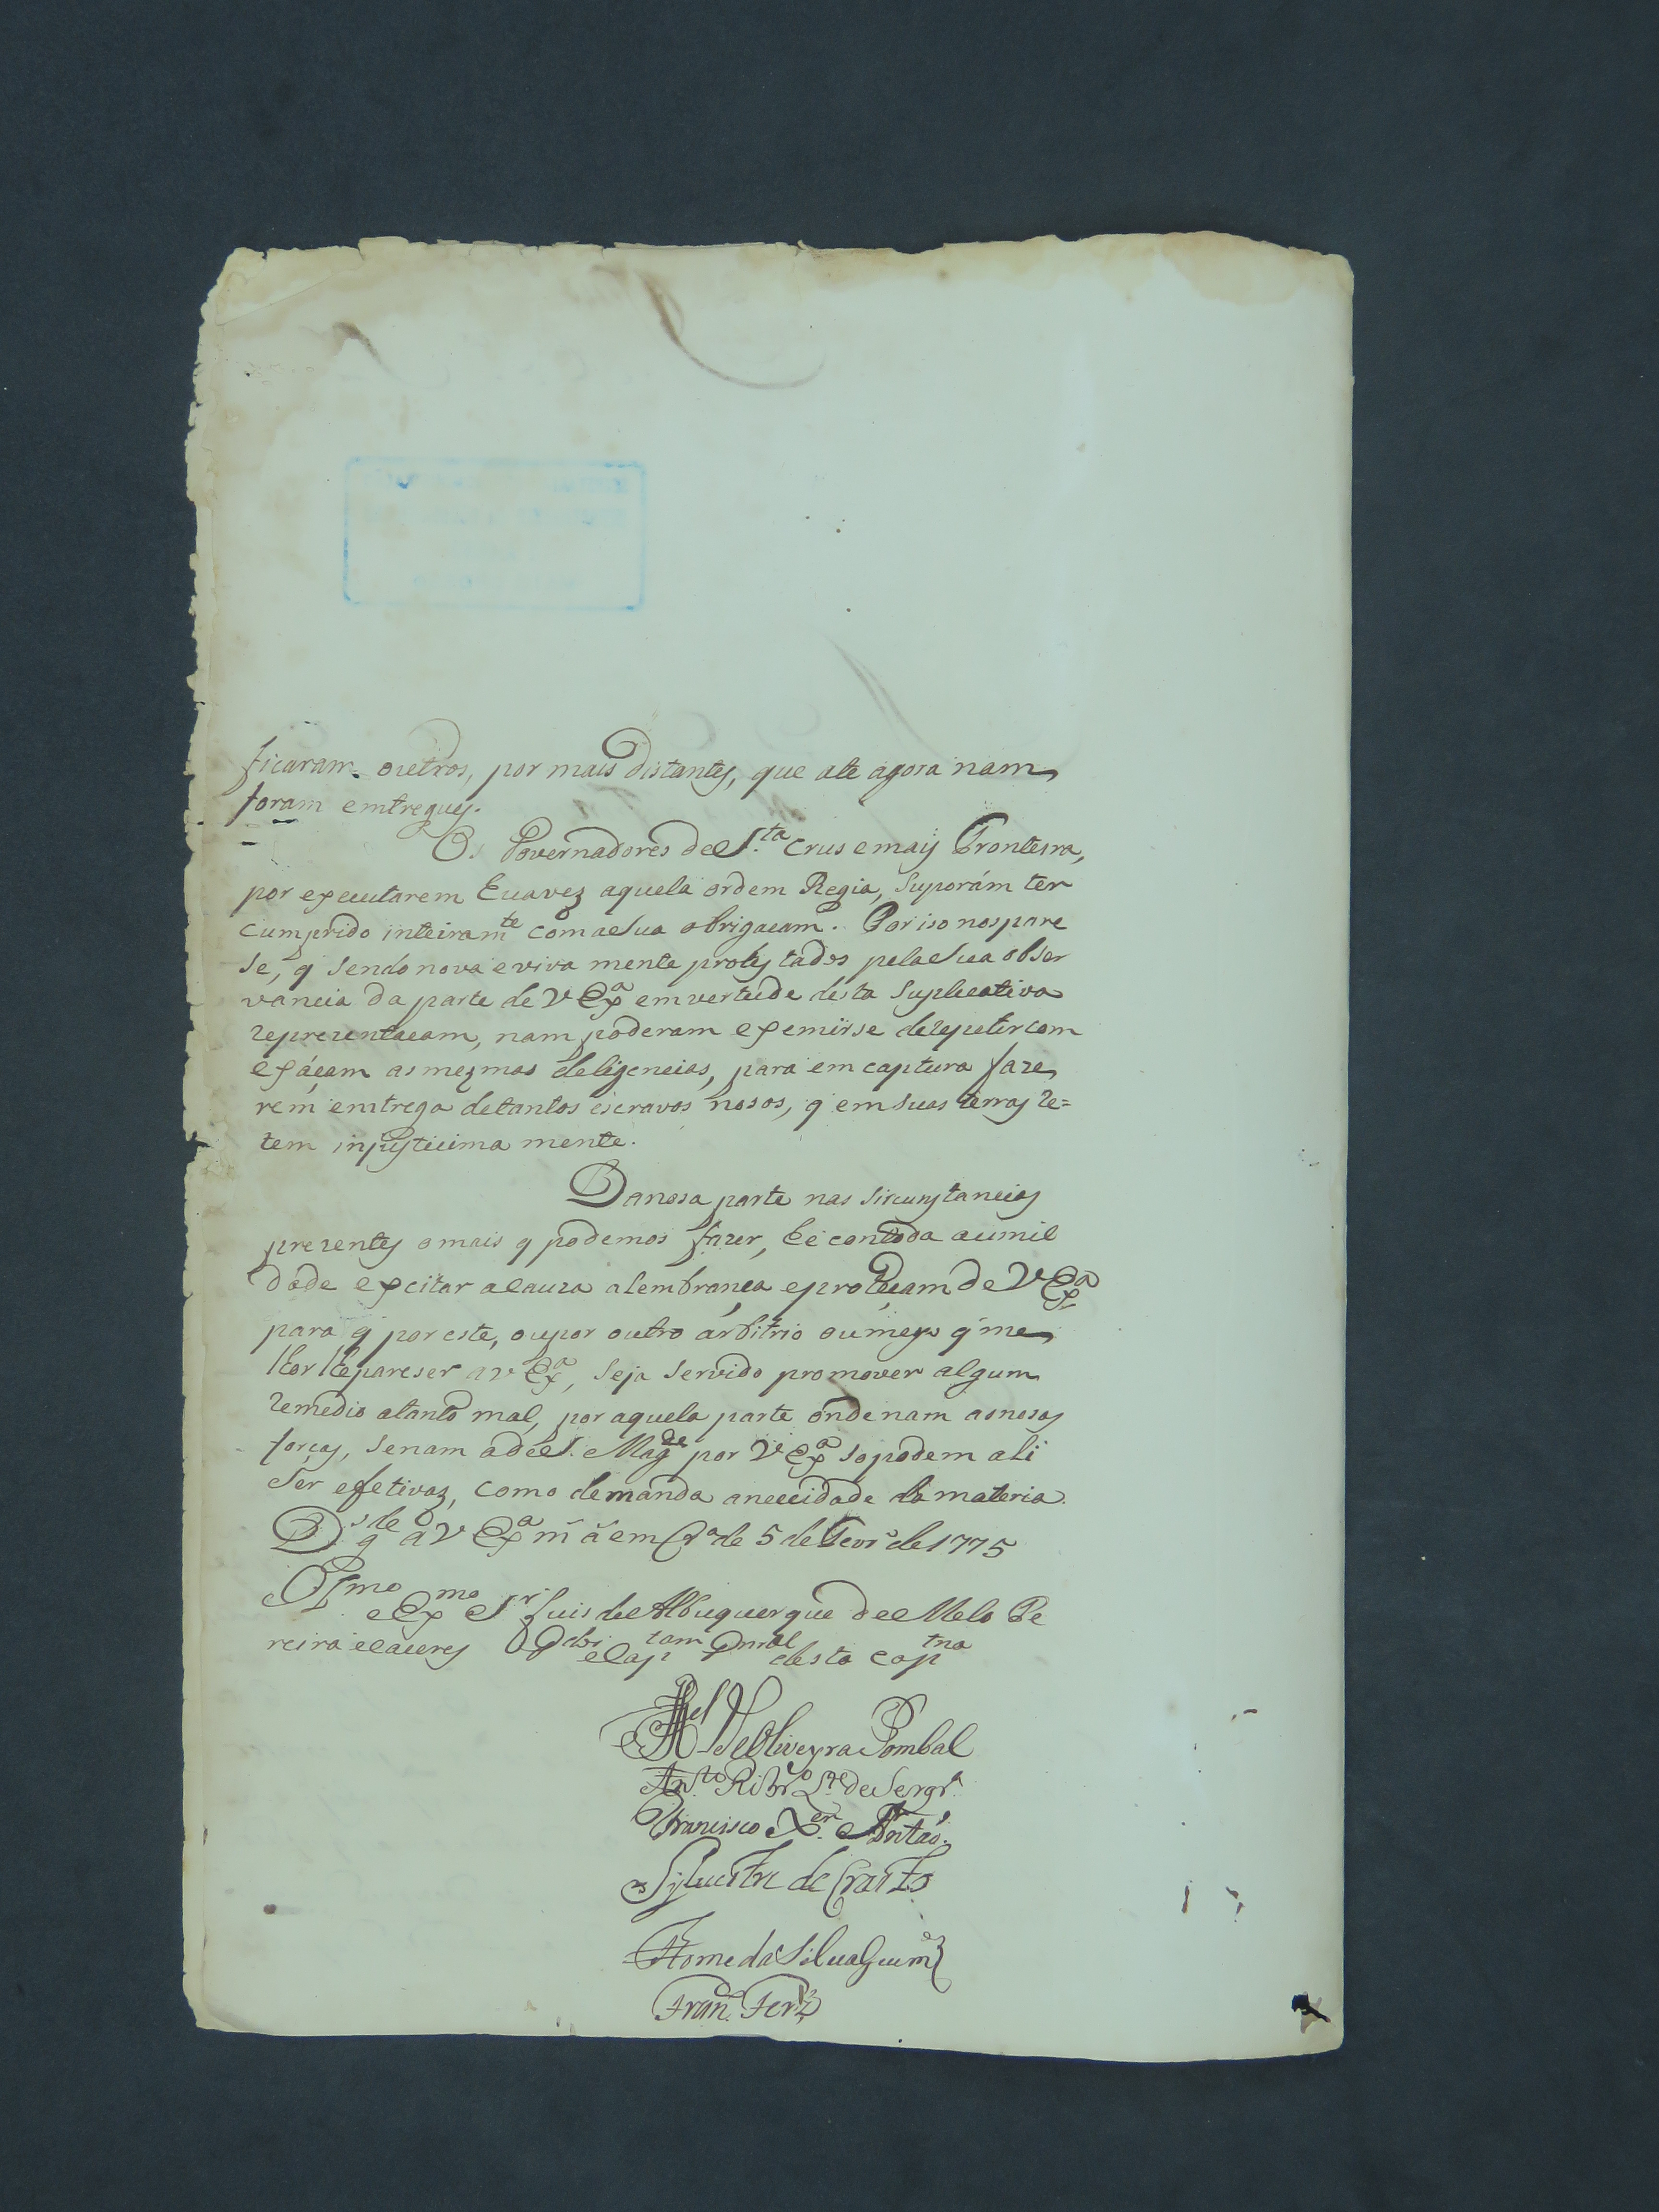 ficaram outros, por mais distantes, que ate agora nam
foram emtregues.
Os Governadores de S.ta Crus e mais Fronteira,
por executarem huavez aquela ordem Regia, suporám ter
cumprido inteiram.te com a sua obrigacam. Por iso nos pare
se, q sendo nova e viva mente protestados pela sua obser
vancia da parte de V Ex.a em vertude desta suplicativa
reprezentacam, nam poderam exemirse de repetir com
exáçam as mezmas deligencias, para em captura faze
rem emtrega de tantos escravos nosos, q em suas terras re=
tem injusticima mente.
Da nosa parte nas sircunstancias
prezentes o mais q podemos fazer, hé com toda a umil
dade expcitar a cauza a lembrança e proteçam de V Ex.a
para q por este, ou por outro árbitrio ou meyo q me
lhor lhe pareser a V Ex.a, seja servido promover algum
remedio a tanto mal, por aquela parte onde nam as nosas
forças, senam a de S. Mag.de por V Ex.a so podem ali
ser efetivas, como demanda a necidade da materia.
D.s g.de a V Ex.a m.s a.s em de 5 de Fevr.o de 1775
Il.mo e Ex.mo S.r Luis de Albuquerque de Melo Pe
reira e Caceres G.dor e Cap.tam Gn.ral desta cap.tna
de Oliveyra Pombal
Ant.o Ribr.o
Francisco X.er
Sylvestre de Crasto
Thome da Silva Guim.es
Fran.co Ferz